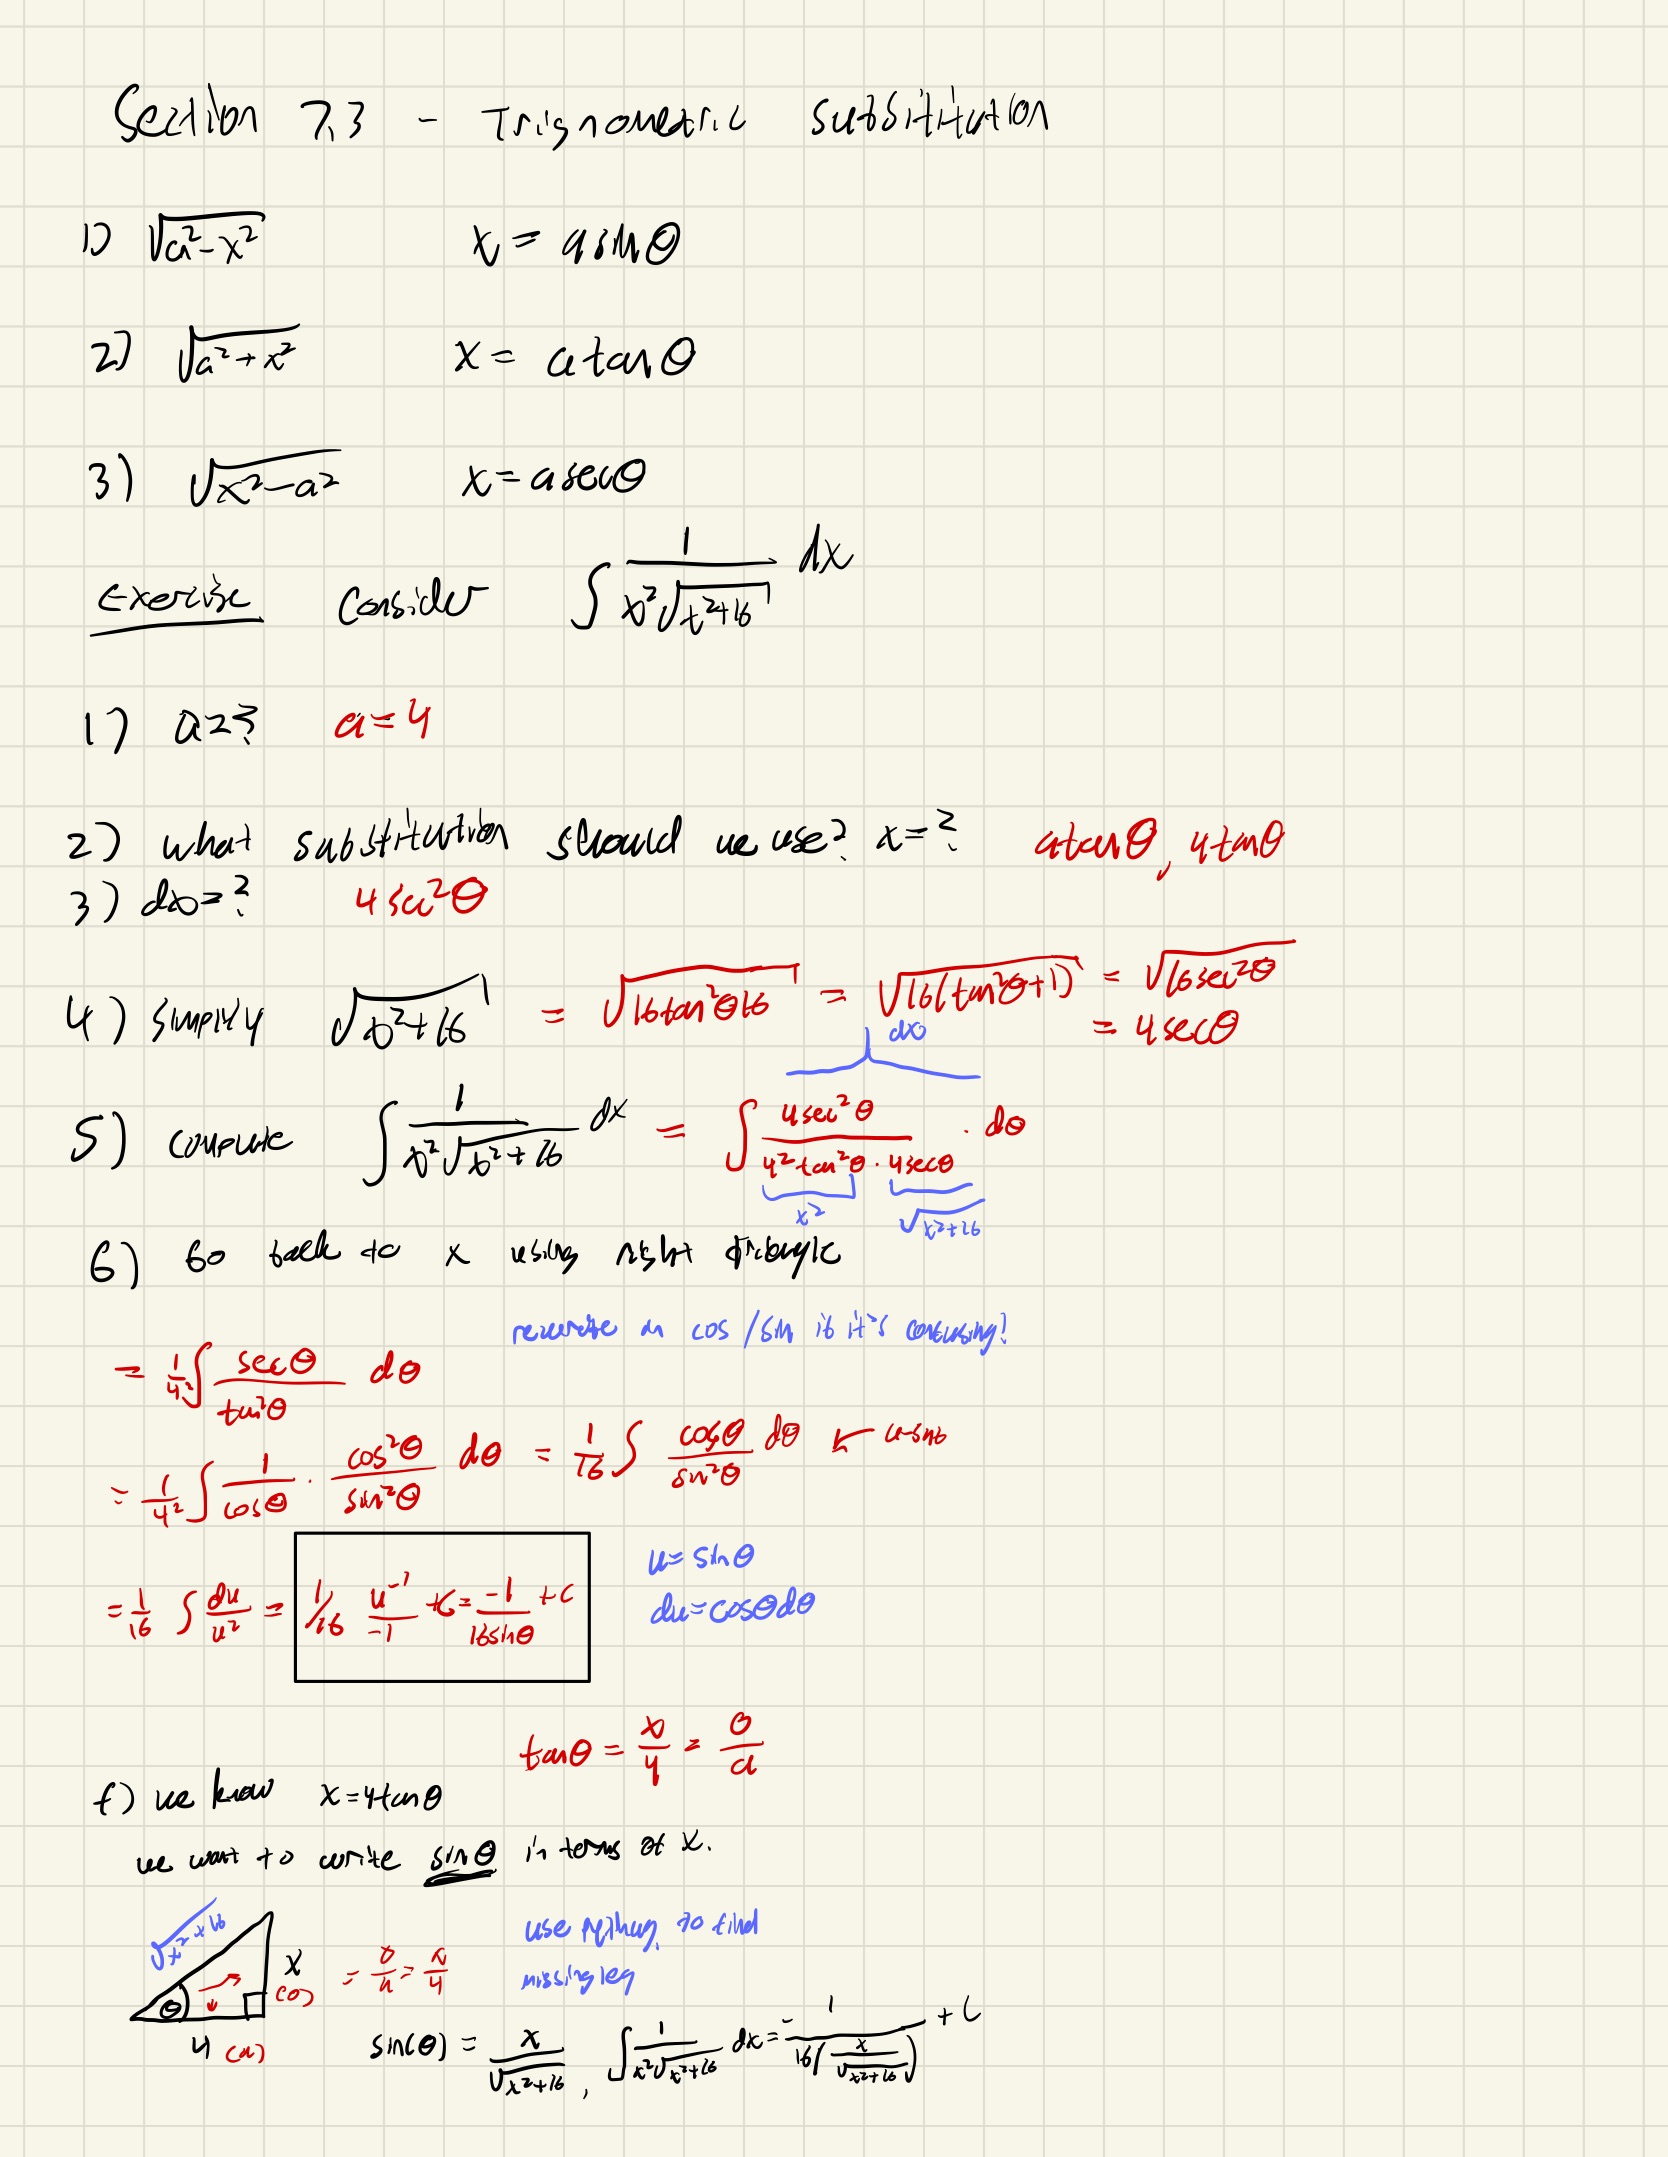 Section 7.3 - Trignometric substitution
1) √(a²-x²) x = asinθ
2) √(a²+x²) x = atanθ
3) √(x²-a²) x = asecθ
Exercise Consider ∫ 1/(x²√(x²+16)) dx
1) a=? a=4
2) what substitution should we use? x=? atanθ, 4tanθ
3) dx=? 4sec²θ
4) simplify √(x²+16) = √(16tan²θ16) = √(16(tan²θ+1)) = √(16sec²θ)
= 4secθ
dx
5) compute ∫ 1/(x²√(x²+16)) dx = ∫ 4sec²θ/(4²tan²θ · 4secθ) · dθ
x² √(x²+16)
6) Go back to x using right triangle
rewrite in cos/sin if it's confusing!
= 1/4² ∫ secθ/tan²θ dθ
= 1/4² ∫ 1/cosθ · cos²θ/sin²θ dθ = 1/16 ∫ cosθ/sin²θ dθ ← u-sub
u=sinθ
du=cosθdθ
= 1/16 ∫ du/u² = 1/16 u⁻¹/-1 +C = -1/16sinθ +C
tanθ = x/4 = o/a
f) we know x=4tanθ
we want to write sinθ in terms of x.
√(x²+16)
x
(o)
θ
4 (a)
= o/a = x/4
use pythag. to find
missing leg
sin(θ) = x/√(x²+16), ∫ 1/(x²√(x²+16)) dx = -1/(16(x/√(x²+16))) + C